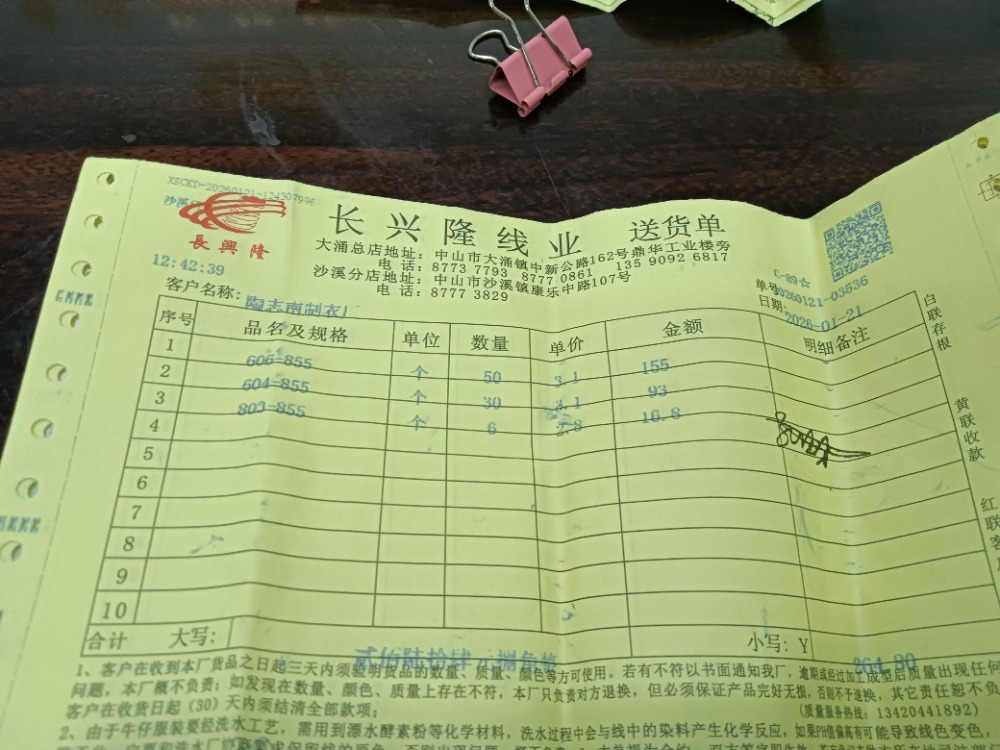 XSCKD-20260121-124307996
長興隆
长兴隆线业 送货单
大涌总店地址: 中山市大涌镇中新公路162号鼎华工业楼旁
电 话: 8773 7793 8777 0861 135 9092 6817
沙溪分店地址: 中山市沙溪镇康乐中路107号
电 话: 8777 3829
12:42:39
C-89☆
客户名称: 陶志南制衣厂
单号: 20260121-03536
日期: 2026-01-21
序号 品名及规格 单位 数量 单价 金额 明细备注
1 606-855 个 50 3.1 155
2 604-855 个 30 3.1 93
3 803-855 个 6 2.8 16.8
4
5
6
7
8
9
10
合计 大写: 贰佰陆拾肆元捌角整 小写: Y 264.80
白联存根
黄联收款
红联客
1、客户在收到本厂货品之日起三天内须验明货品的数量、质量、颜色等方可使用。若有不符以书面通知我厂,逾距或经过加工成型后质量出现任何
问题,本厂概不负责;如发现在数量、颜色、质量上存在不符,本厂只负责对方退换,但必须保证产品完好无损,否则不予退换,其它责任恕不负
客户在收货日起(30)天内须结清全部款项;
(质量服务热线: 13420441892)
2、由于牛仔服装要经洗水工艺,需用到漂水酵素粉等化学材料,洗水过程中会与线中的染料产生化学反应,如果PH值偏高有可能导致线色变色,